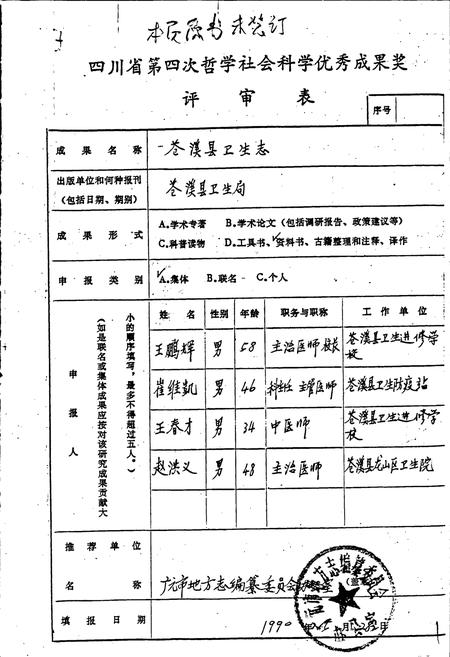 本页原书未装订
四川省第四次哲学社会科学优秀成果奖
评审表
序号
成果名称 苍溪县卫生志
出版单位和何种报刊(包括日期、期别) 苍溪县卫生局
成果形式 A.学术专著 B.学术论文(包括调研报告、政策建议等)
C.科普读物 D.工具书、资料书、古籍整理和注释、译作
申报类别 A.集体 B.联名 C.个人
申报人
(如是联名或集体成果应按对该研究成果贡献大
小的顺序填写,最多不得超过五人。)
姓名 性别 年龄 职务与职称 工作单位
王鹏辉 男 58 主治医师 校长 苍溪县卫生进修学校
崔维凯 男 46 科主任 主管医师 苍溪县卫生防疫站
王春才 男 34 中医师 苍溪县卫生进修学校
赵洪义 男 48 主治医师 苍溪县龙山区卫生院
推荐单位名称 广元市地方志编纂委员会 (盖章)
填报日期 1990年 月 日